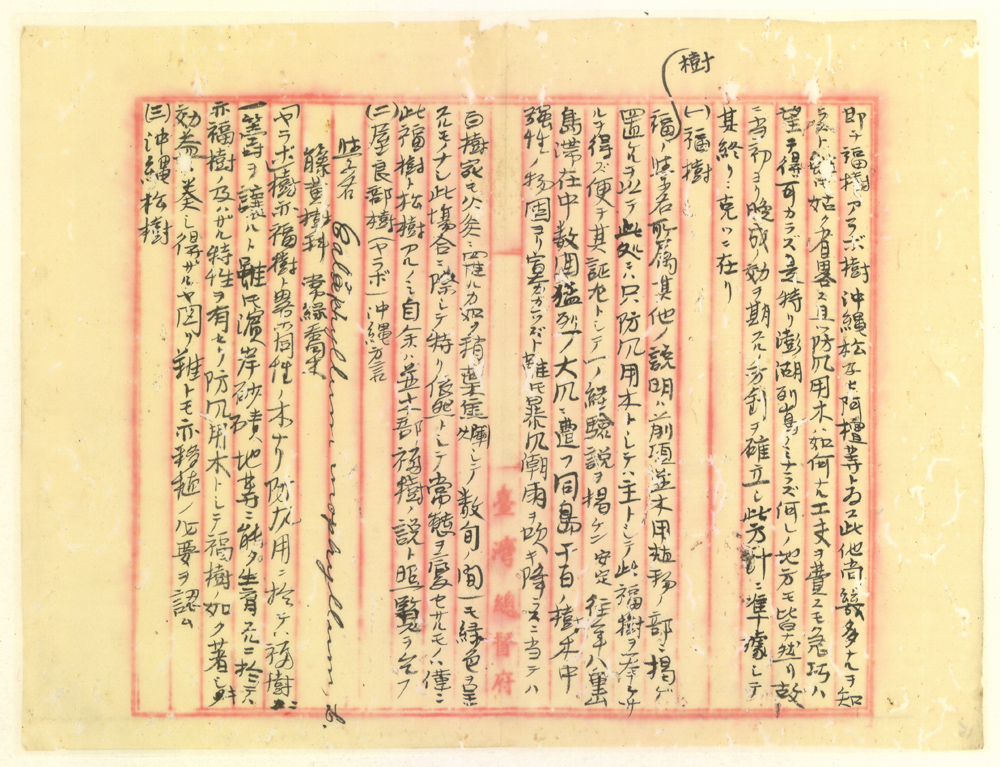 即チ福樹ヤラボ樹沖縄松及ヒ阿檀等トス此他尚幾多アルヲ知
ルト雖モ姑ク省畧ス且防風用木ハ如何ナル工丈ヲ費スモ急巧ハ
望ヲ得可カラズ是特リ澎湖列島ノミナラズ何レノ地方モ皆然リ故
ニ当初ヨリ晩成ノ効ヲ期スルノ方針ヲ確立シ此方計ニ準據シテ
其終リニ克ツニ在リ
(一)福樹
樹
福ノ学名所属其他ノ説明ハ前項並木用植物ノ部ニ揭ゲ
置ケルヲ以テ此処ニハ只防風用木トシテハ主トシテ此福樹ヲ奉ケサ
ルヲ得ズ便チ其証左トシテ一ノ経驗説ヲ揭ケン安定往年八重山
島滞在中数回猛烈ノ大風ニ遭フ同島千百ノ樹木中
强性ノ物固ヨリ寡カラズト雖モ暴風潮雨ヲ吹キ降ラスニ当テハ
百樹宛モ火灸ニ罹ルカ如ク稍葉焦爛シテ数旬ノ間一モ緑色ヲ呈
スルモノナシ此場合ニ際シテ特リ依然トシテ常態ヲ変セサルモノハ僅ニ
此福樹ト松樹アルノミ自余ハ並木部福樹ノ説ト照覧ヲ乞フ
(二)屋良部樹(ヤラボ)沖縄方言
学名 Calophyllum inophyllum, L.
藤黄樹科 常緑喬木
ヤラボ樹亦福樹ト畧同性ノ木ナリ防風用ニ於テハ福樹ニ
一籌ヲ譲ルト雖モ濱岸砂磧ノ地等ニ能ク生育スルニ於テハ
亦福樹ノ及ハザル特性ヲ有セリ防风用木トシテ福樹ノ如ク著シキ
効益ハ奏シ得ザルヤ図リ難トモ亦移植ノ必要ヲ認ム
(三)沖縄松樹
臺灣總督府